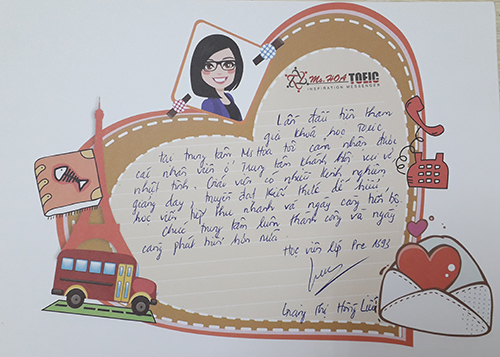 Ms. HOA TOEIC
INSPIRATION MESSENGER
Lần đầu tiên tham
gia khoá học TOEIC
tại trung tâm Ms Hoa tôi cảm nhận được
các nhân viên ở trung tâm khánh tiết vui vẻ
nhiệt tình. Giáo viên có nhiều kinh nghiệm
giảng dạy, truyền đạt kiến thức dễ hiểu,
học viên tiếp thu nhanh và ngày càng tiến bộ.
Chúc trung tâm luôn thành công và ngày
càng phát triển hơn nữa.
Học viên lớp Pre 1593
Thị Hồng